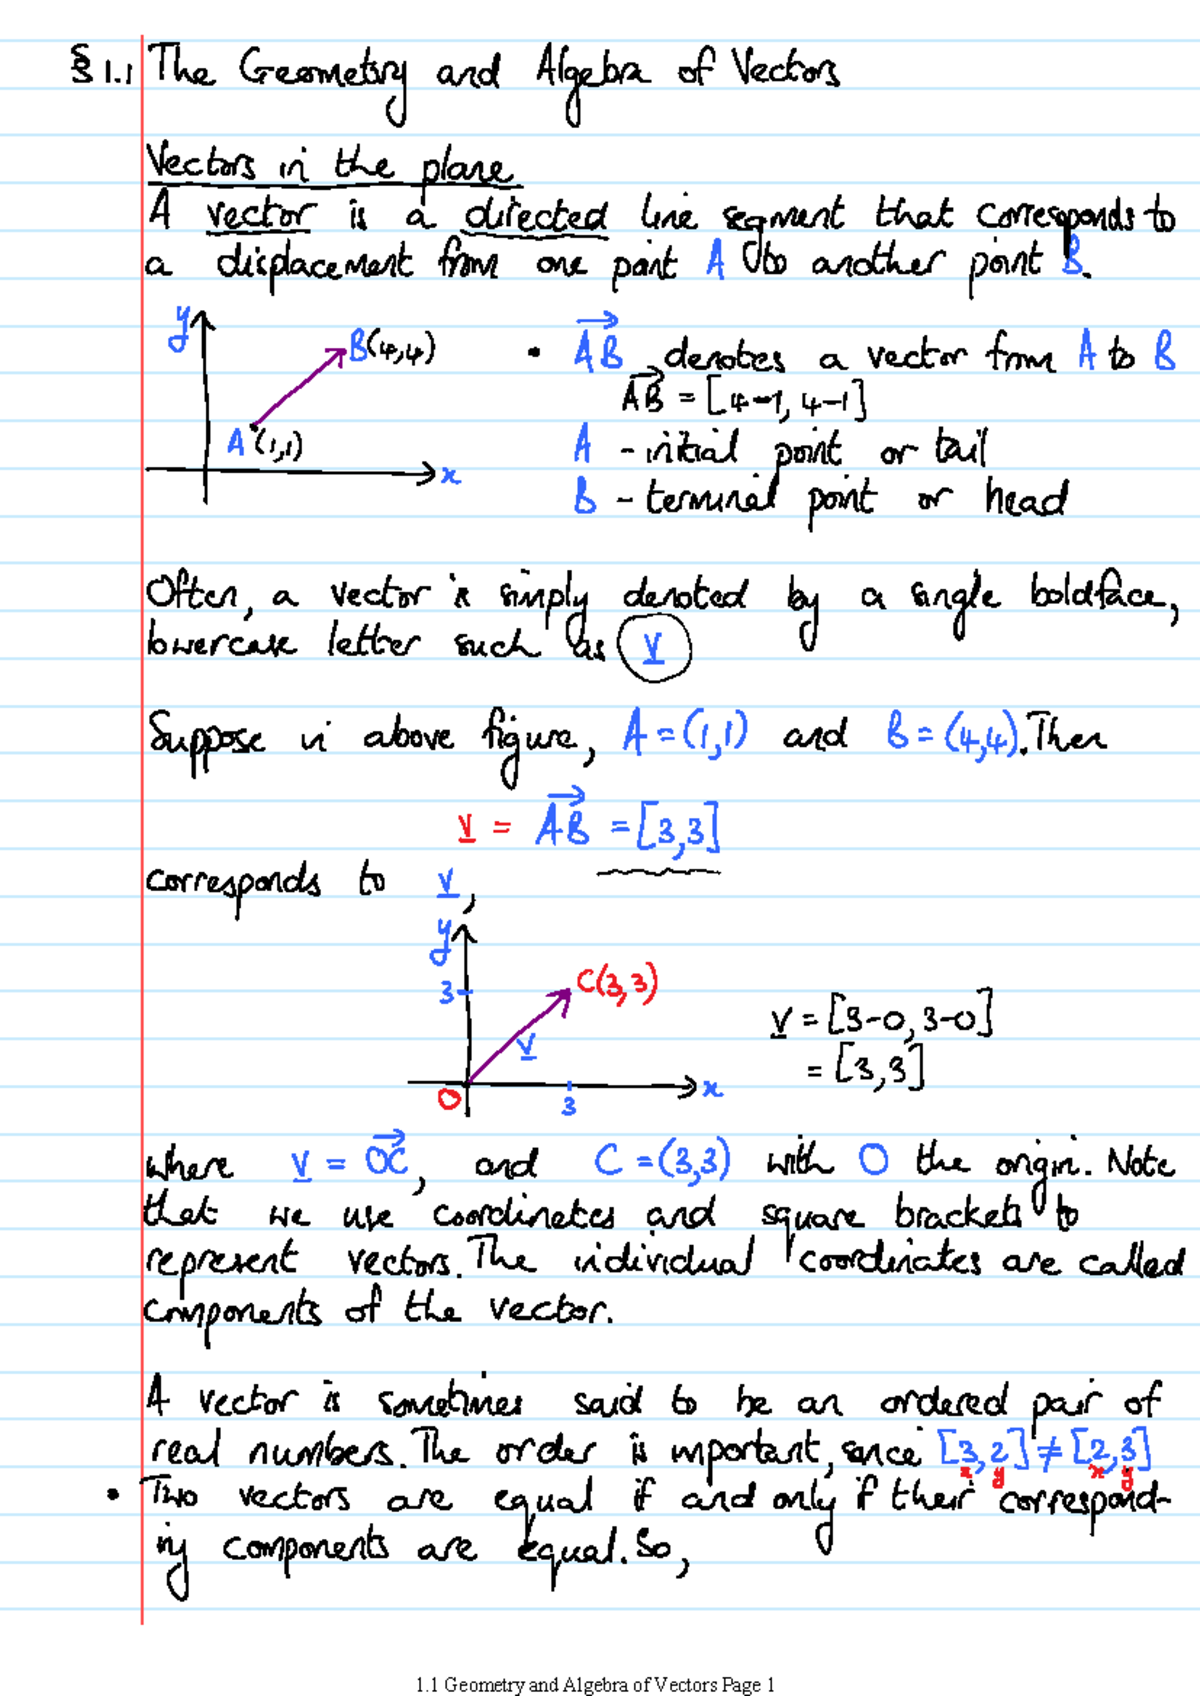 § 1.1 The Geometry and Algebra of Vectors
Vectors in the plane
A vector is a directed line segment that corresponds to
a displacement from one point A to another point B.
y
B(4,4)
A (1,1)
x
• AB denotes a vector from A to B
AB = [4-1, 4-1]
A - initial point or tail
B - terminal point or head
Often, a vector is simply denoted by a single boldface,
lowercase letter such as v
Suppose in above figure, A = (1,1) and B = (4,4). Then
v = AB = [3,3]
corresponds to v,
y
3
C(3,3)
v
O
3
x
v = [3-0, 3-0]
= [3,3]
where v = OC, and C = (3,3) with O the origin. Note
that we use coordinates and square brackets to
represent vectors. The individual coordinates are called
components of the vector.
A vector is sometimes said to be an ordered pair of
real numbers. The order is important, since [3,2] ≠ [2,3]
x y x y
• Two vectors are equal if and only if their correspond-
ing components are equal. So,
1.1 Geometry and Algebra of Vectors Page 1